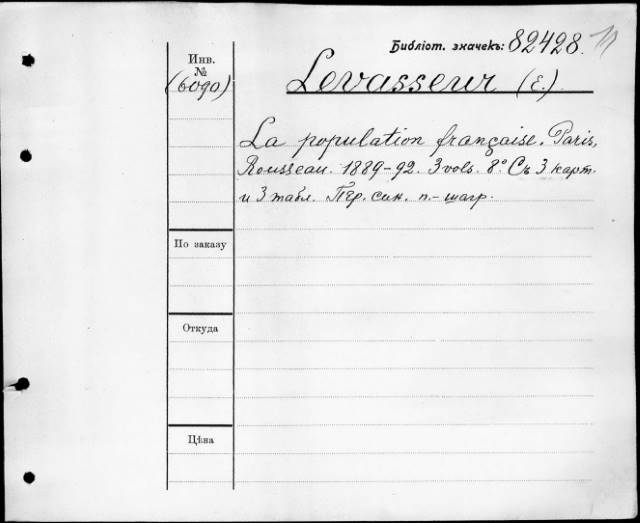 Библіот. значекъ: 82428.
Инв.
№
(6090)
Levasseur (E.)
La population française. Paris,
Rousseau. 1889-92. 3 vols. 8° Съ 3 карт.
и 3 табл. Пер. син. п.-шагр.
По заказу
Откуда
Цѣна